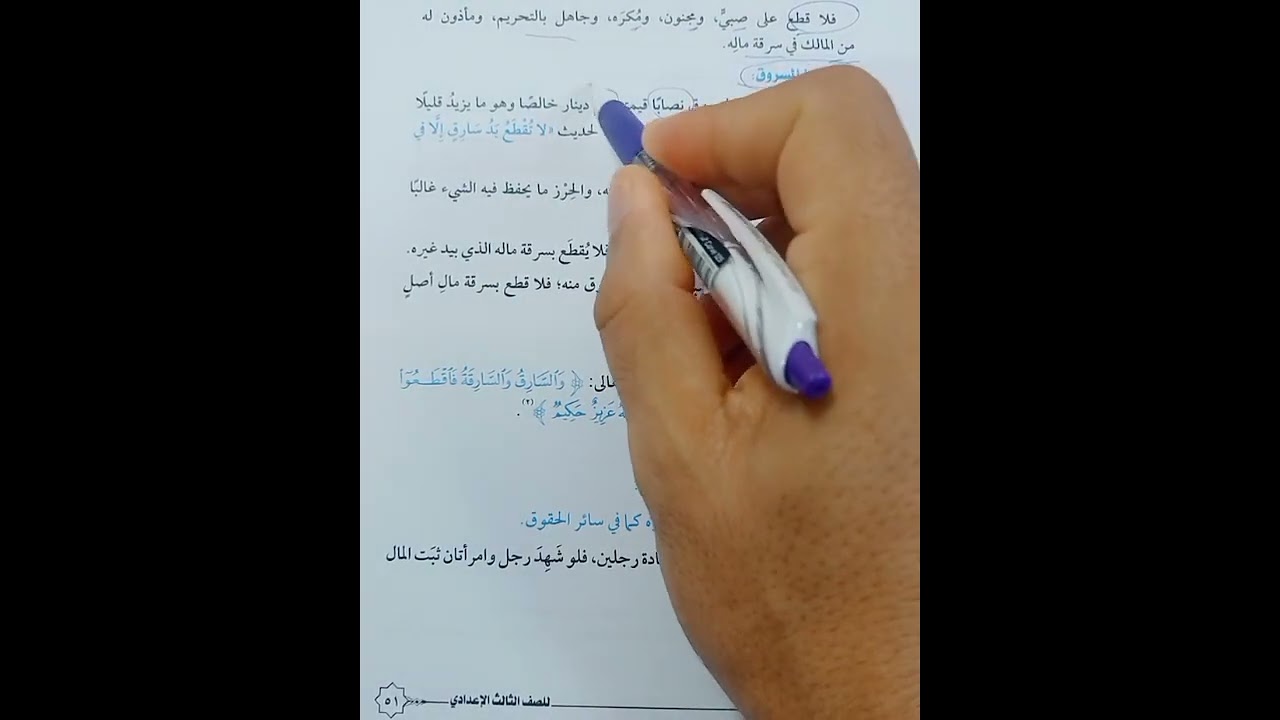 فلا قطع على صِبيٍّ، ومجنون، ومُكرَه، وجاهل بالتحريم، ومأذون له
من المالك في سرقة مالِه.
المسروق:
نصابًا دينار خالصًا وهو ما يزيدُ قليلًا
لحديث «لا تُقْطَعُ يَدُ سَارِقٍ إِلَّا فِي
والحِرْز ما يحفظ فيه الشيء غالبًا
فلا يُقطَع بسرقة ماله الذي بيد غيره.
منه؛ فلا قطع بسرقة مالِ أصلٍ
﴿ وَٱلسَّارِقُ وَٱلسَّارِقَةُ فَٱقْطَعُوٓا۟
عَزِيزٌ حَكِيمٌ ﴾(٢).
كما في سائر الحقوق.
رجلين، فلو شَهِدَ رجل وامرأتان ثبَت المال
للصف الثالث الإعدادي
٥١